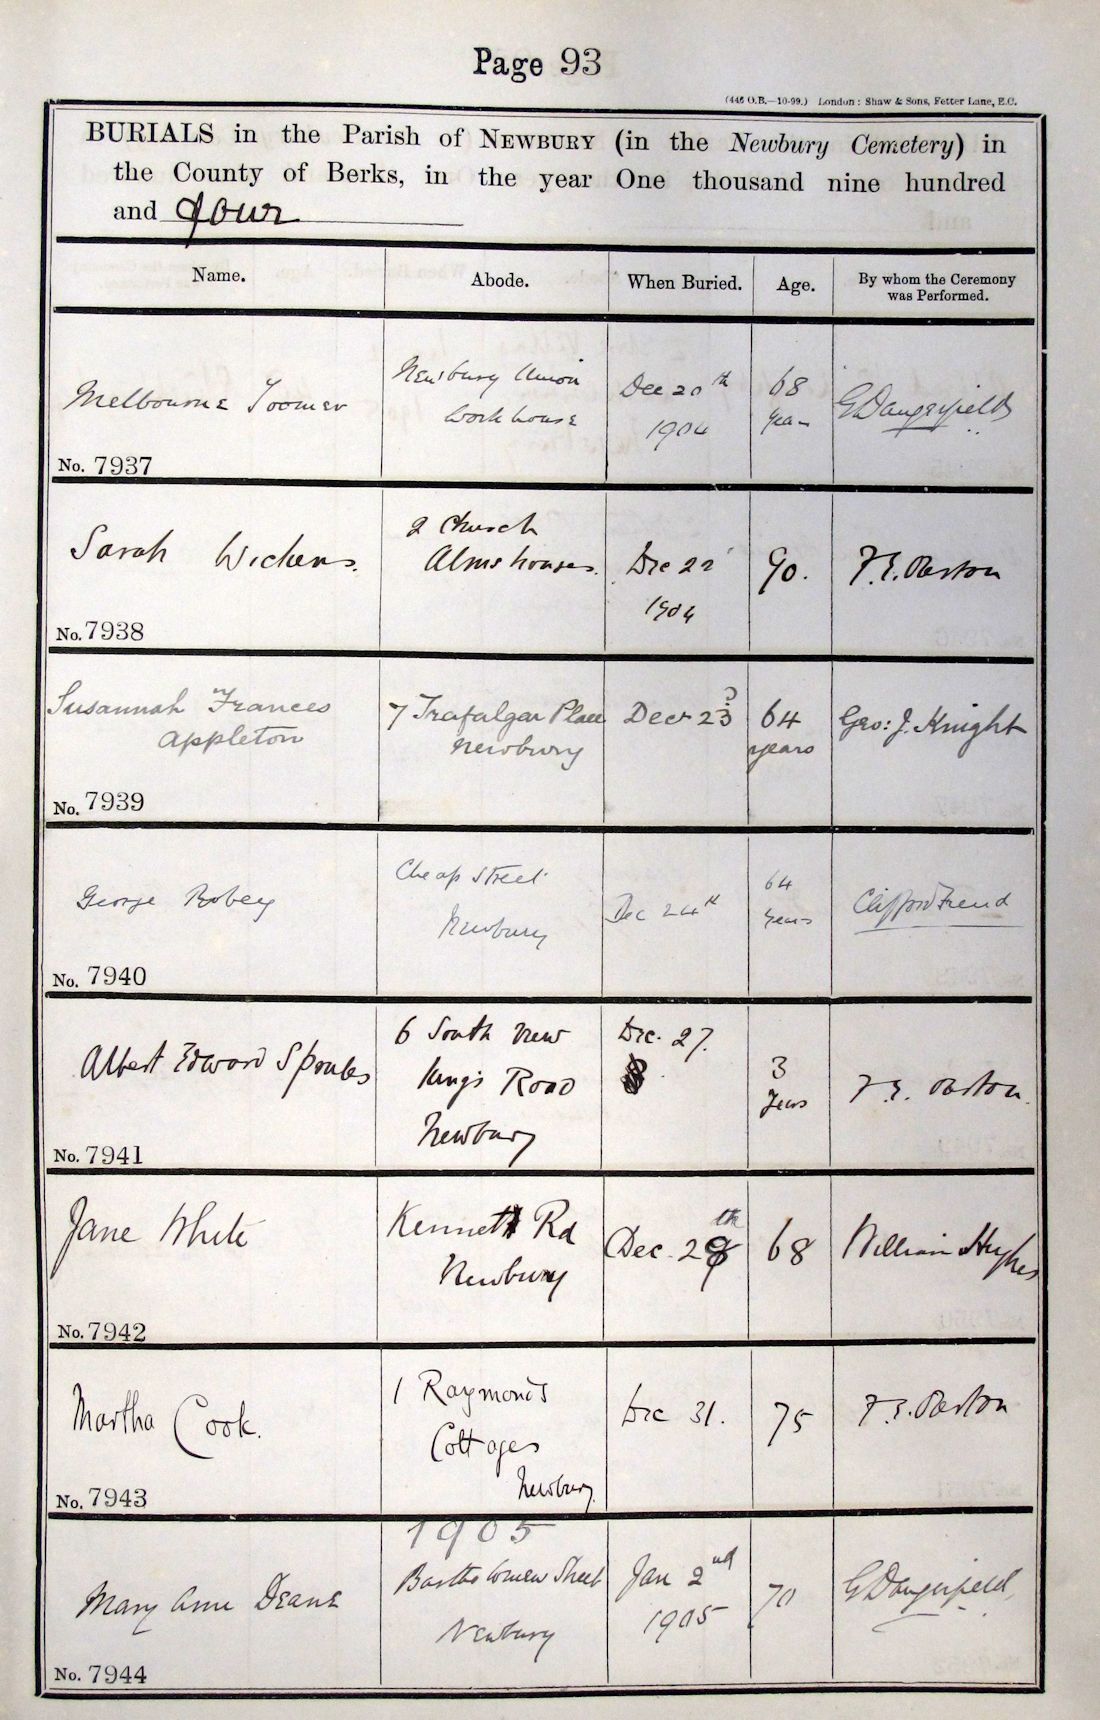 Page 93
(446 O.B.—10-99.) London: Shaw & Sons, Fetter Lane, E.C.
BURIALS in the Parish of NEWBURY (in the Newbury Cemetery) in
the County of Berks, in the year One thousand nine hundred
and four
Name. Abode. When Buried. Age. By whom the Ceremony
was Performed.
Melbourne Toomer
Newbury Union
Workhouse
Dec 20th
1904
68
years
G Dangerfield
No. 7937
Sarah Wickens.
2 Church
Alms houses.
Dec 22
1904
90.
F. E. Overton
No. 7938
Susannah Frances
Appleton
7 Trafalgar Place
Newbury
Decr 23
?
64
years
Geo: J. Knight
No. 7939
George Robey
Cheap Street
Newbury
Dec 24th
64
years
Clifford Friend
No. 7940
Albert Edward
6 South View
Kings Road
Newbury
Dec. 27.
3
Years
F. E. Overton
No. 7941
Jane White
Kennet Rd
Newbury
Dec. 29th
68
William Hughes
No. 7942
Martha Cook.
1 Raymonds
Cottages
Newbury
Dec 31.
75
F. E. Overton
No. 7943
1905
Mary Ann Deane
Bartholomew Street
Newbury
Jan 2nd
1905
70
G Dangerfield
No. 7944